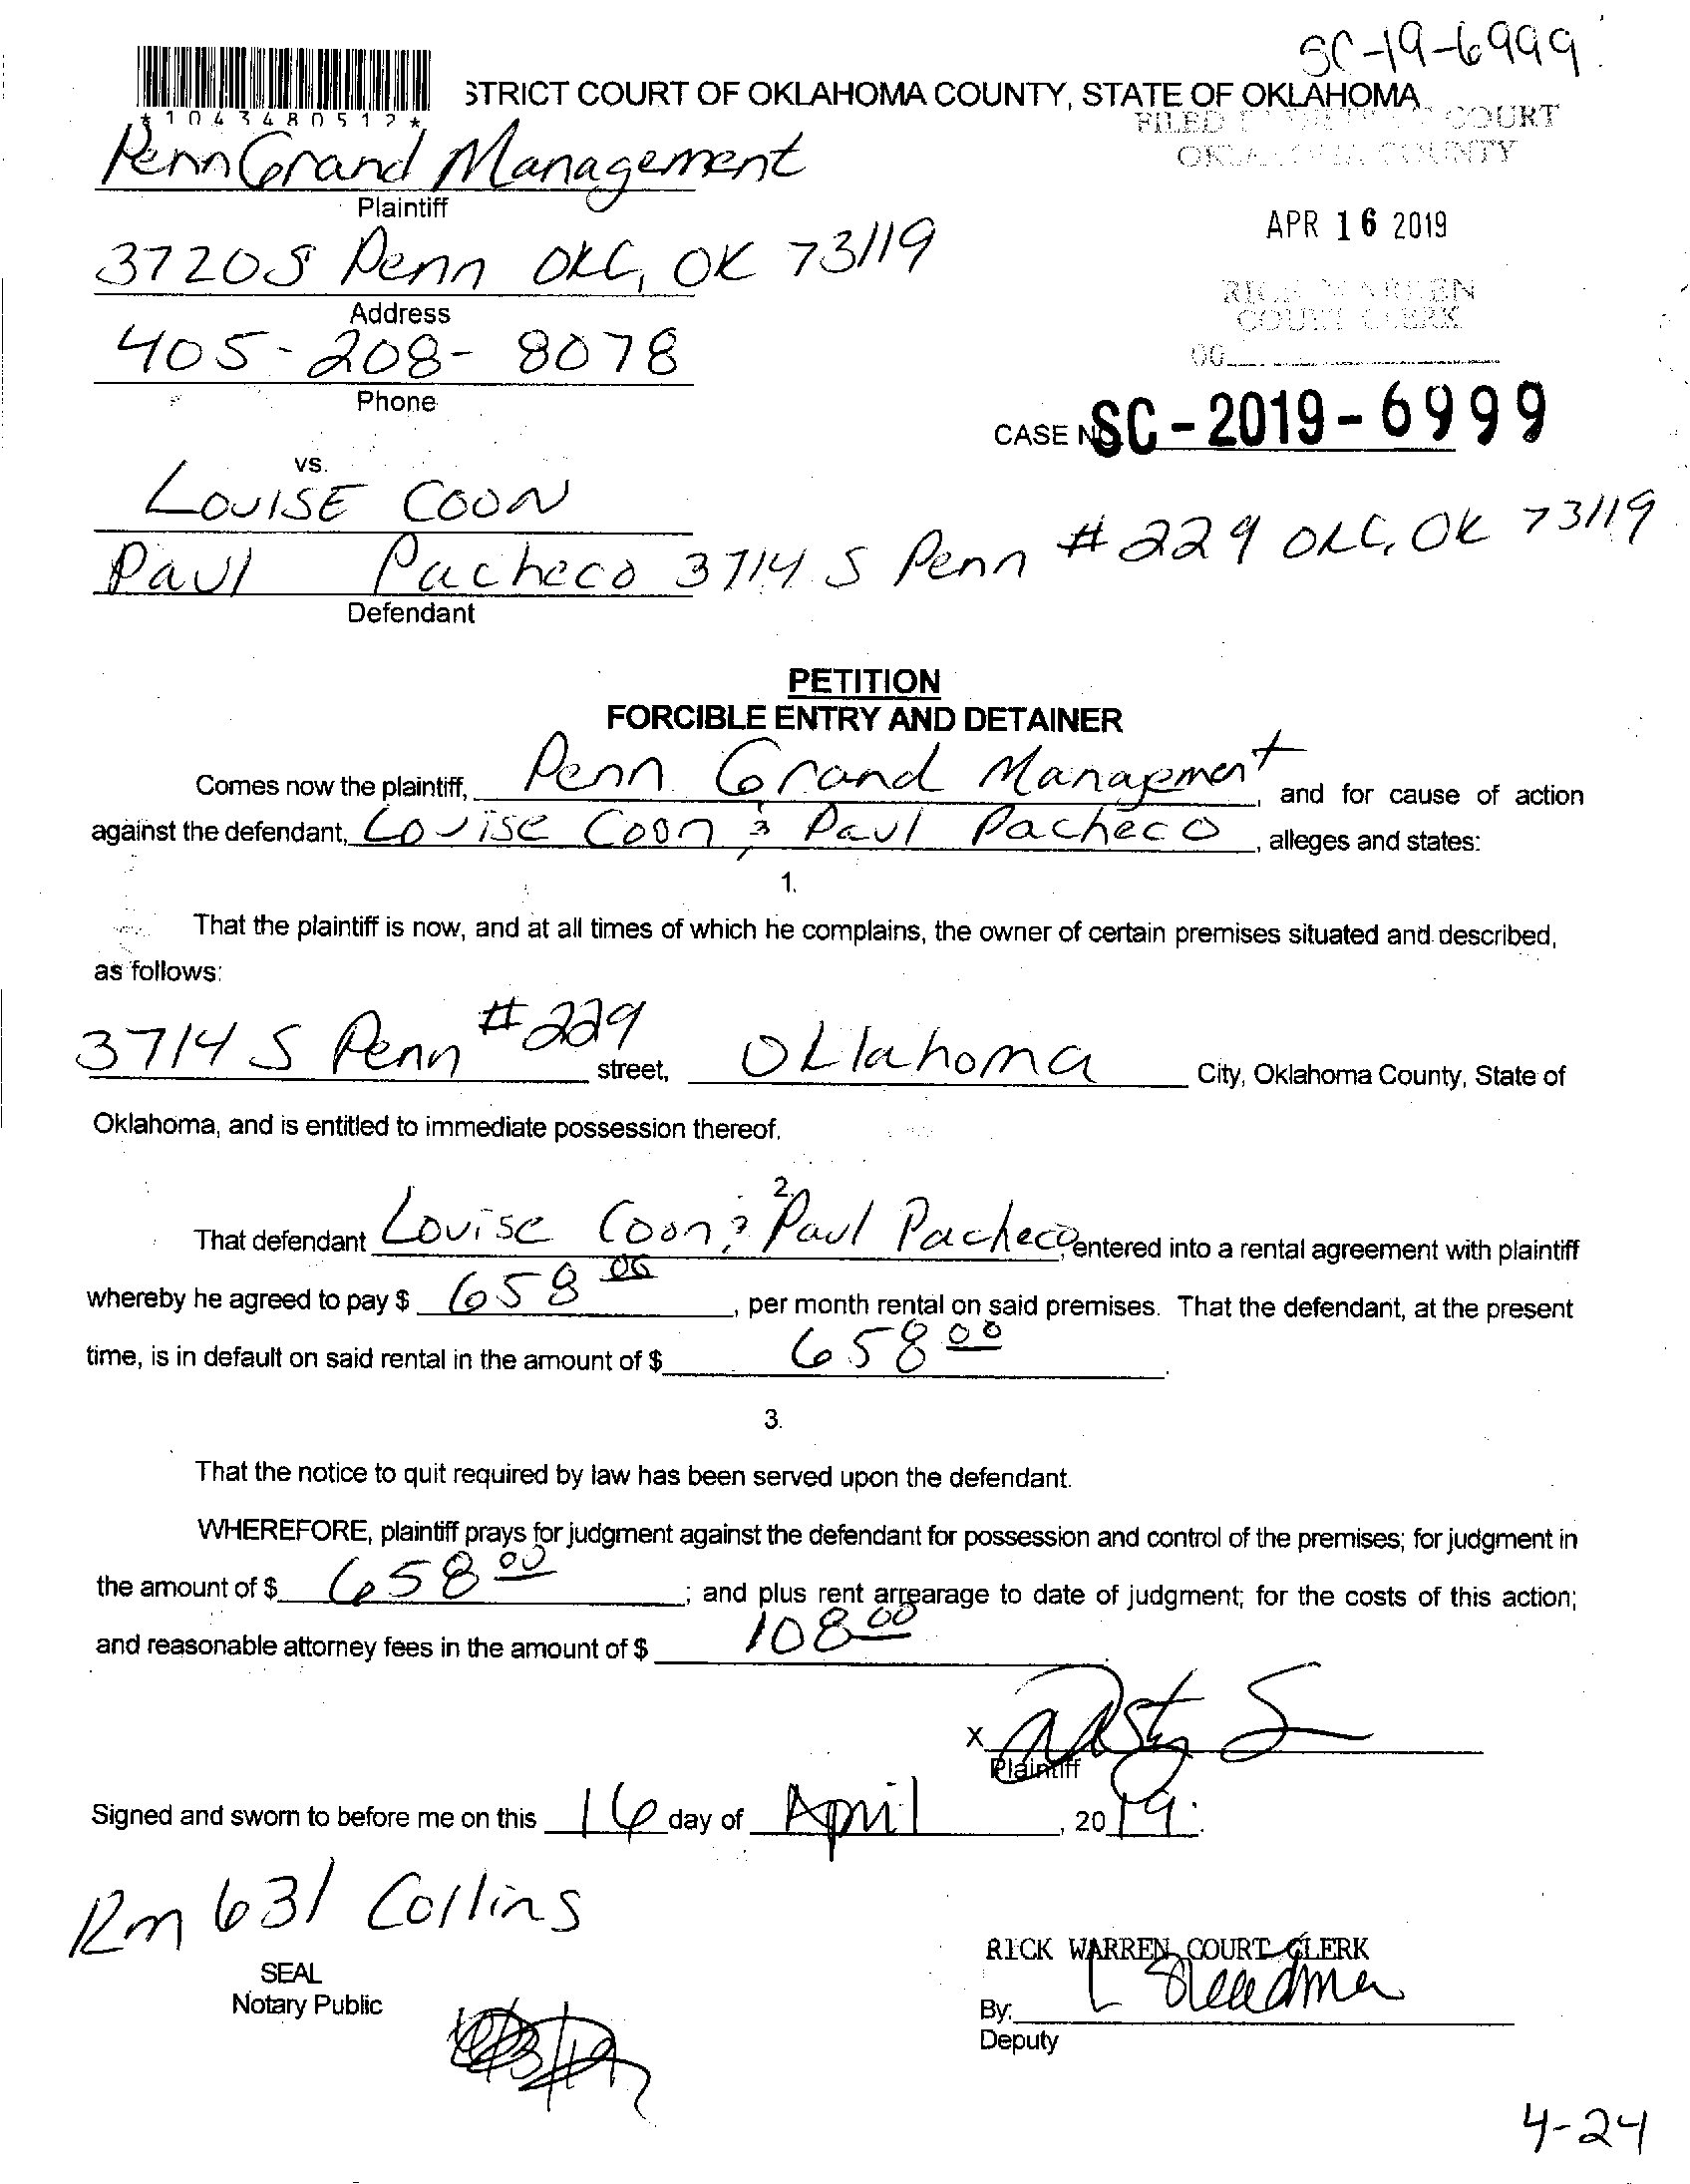 SC-19-6999
STRICT COURT OF OKLAHOMA COUNTY, STATE OF OKLAHOMA
*1043480512*
FILED COURT
Penn Grand Management
OKLAHOMA COUNTY
Plaintiff
APR 16 2019
3720 S Penn OKC, OK 73119
RICK WARREN
Address
COURT CLERK
405-208-8078
Phone
CASE NO SC-2019-6999
vs.
LOUISE COON
Paul Pacheco 3714 S Penn #229 OKC, OK 73119
Defendant
PETITION
FORCIBLE ENTRY AND DETAINER
Comes now the plaintiff, Penn Grand Managment, and for cause of action
against the defendant, Louise Coon & Paul Pacheco, alleges and states:
1.
That the plaintiff is now, and at all times of which he complains, the owner of certain premises situated and described,
as follows:
3714 S Penn #229 street, Oklahoma City, Oklahoma County, State of
Oklahoma, and is entitled to immediate possession thereof.
2.
That defendant Louise Coon & Paul Pacheco, entered into a rental agreement with plaintiff
whereby he agreed to pay $ 658 00, per month rental on said premises. That the defendant, at the present
time, is in default on said rental in the amount of $ 658 00.
3.
That the notice to quit required by law has been served upon the defendant.
WHEREFORE, plaintiff prays for judgment against the defendant for possession and control of the premises; for judgment in
the amount of $ 658 00; and plus rent arrearage to date of judgment; for the costs of this action;
and reasonable attorney fees in the amount of $ 108 00
X
Plaintiff
Signed and sworn to before me on this 16 day of April, 2019.
Rm 631 Collins
RICK WARREN COURT CLERK
SEAL
Notary Public
By:
Deputy
4-24